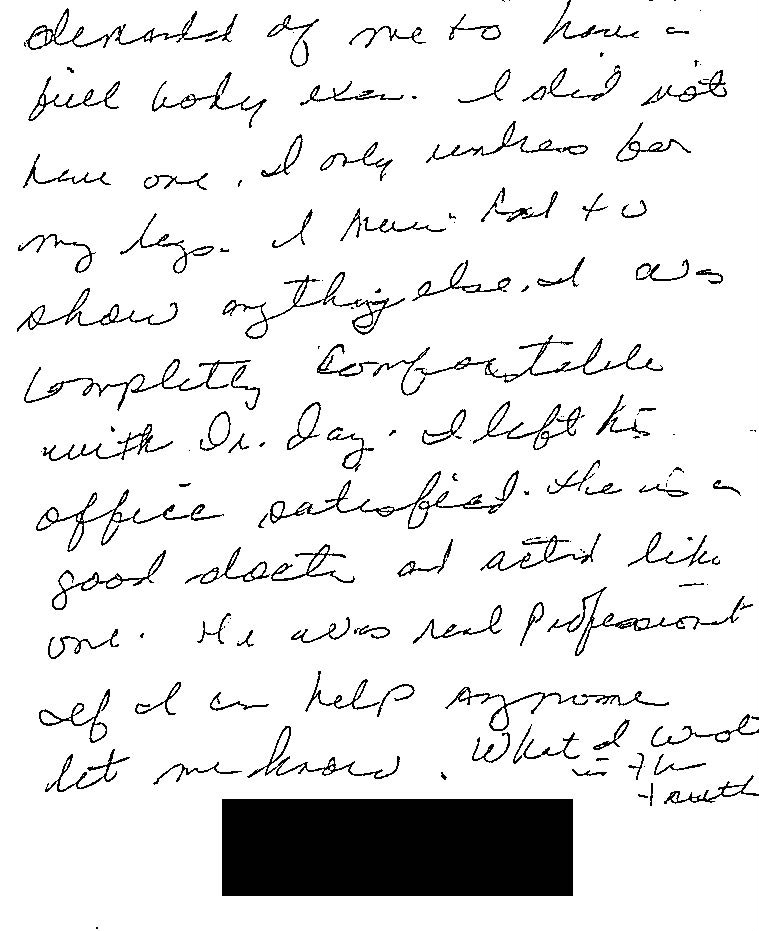 demanded of me to have a
full body exam. I did not
have one. I only undress for
my legs. I never had to
show anything else. I was
completly comfortable
with Dr. Day. I left his
office satisfied. He is a
good doctor and acted like
one. He was real professional
If I can help anymore
let me know. What I wrote
is the
truth